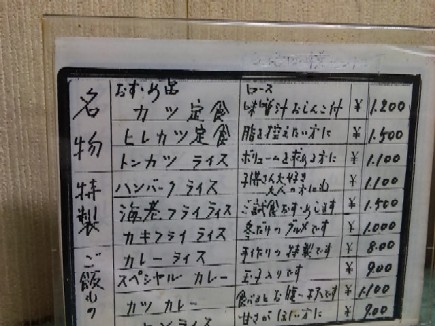 名物
特製
ご飯もの
おすすめ品 ロース
カツ定食 味噌汁おしんこ付 ¥1.200
ヒレカツ定食 脂を控えたい方に ¥1.500
トンカツ ライス ボリュームを求める方に ¥1.100
ハンバーク ライス 子供さん大好き 大人の方にも ¥1.100
海老フライライス ご試食おすすめします ¥1.500
カキフライ ライス 冬だけのグルメです ¥1.000
カレー ライス 手作りの特製です ¥800
スペシャル カレー 玉子入りです ¥900
カツ カレー ¥1.100
ライス 甘さがほしい方に ¥900